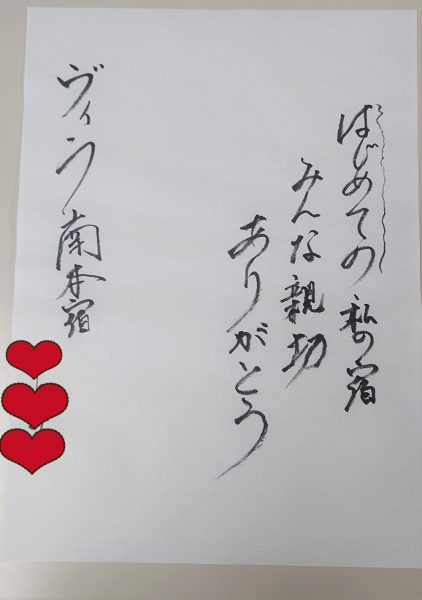 はじめての 私の宿
みんな親切
ありがとう
ヴィラ南本宿